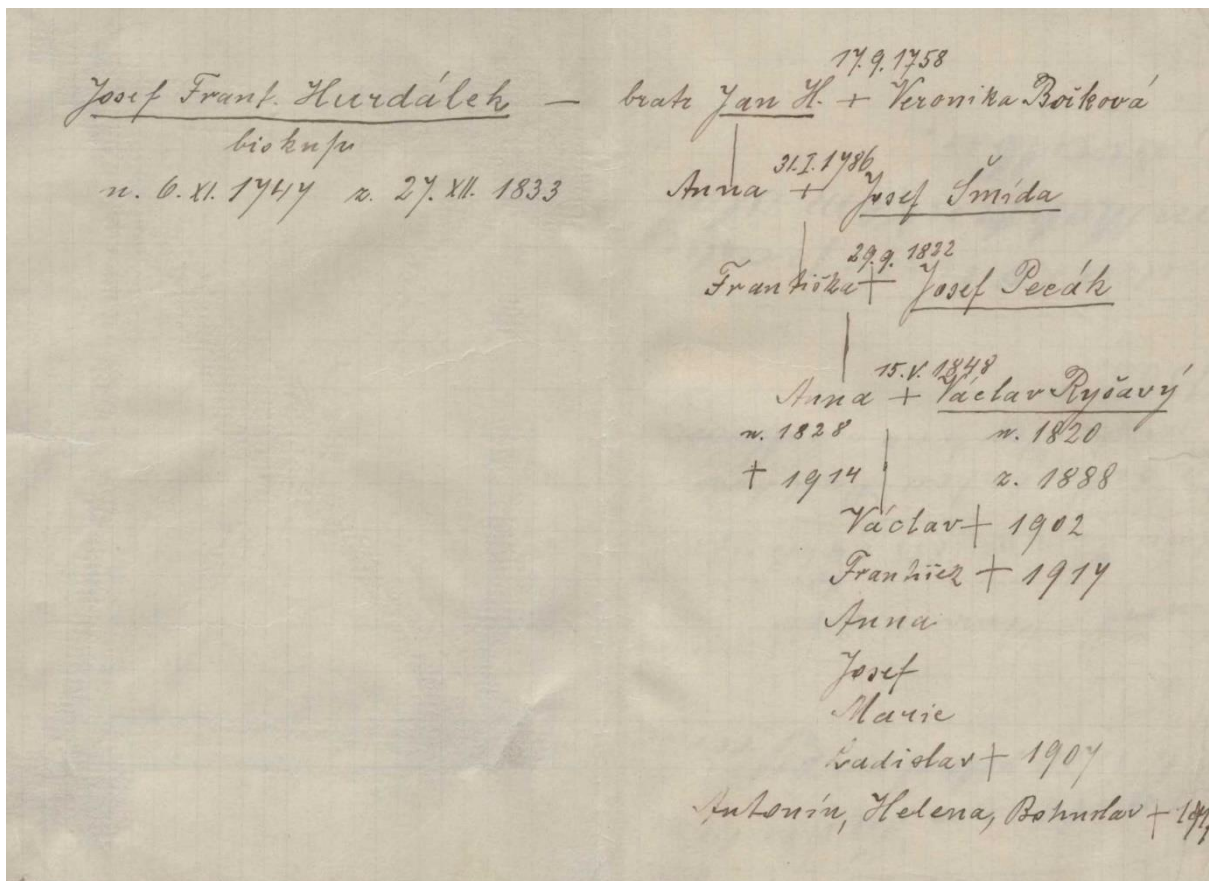 17. 9. 1758
Josef Frant. Hurdálek — bratr Jan H. + Veronika Bočková
biskup
31. I. 1786
n. 6. XI. 1747 z. 27. XII. 1833 Anna + Josef Šmída
29. 9. 1822
Františka + Josef Pecák
15. V. 1848
Anna + Václav Ryšavý
n. 1828 n. 1820
+ 1914 z. 1888
Václav + 1902
František + 1917
Anna
Josef
Marie
Ladislav + 1907
Antonín, Helena, Bohuslav +